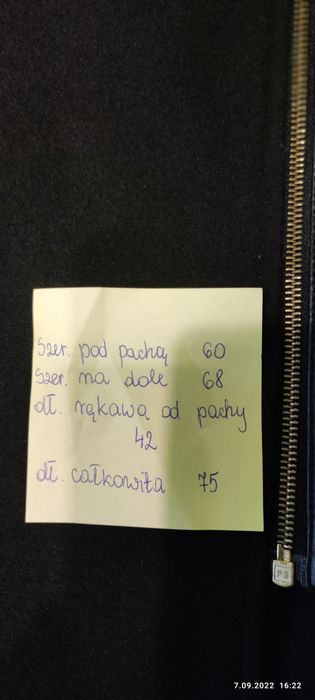 Szer. pod pachą 60
Szer. na dole 68
dł. rękawa od pachy
42
dł. całkowita 75
PS
7.09.2022 16:22